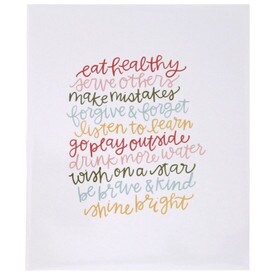 eat healthy
serve others
make mistakes
forgive & forget
listen to learn
go play outside
drink more water
wish on a star
be brave & kind
shine bright